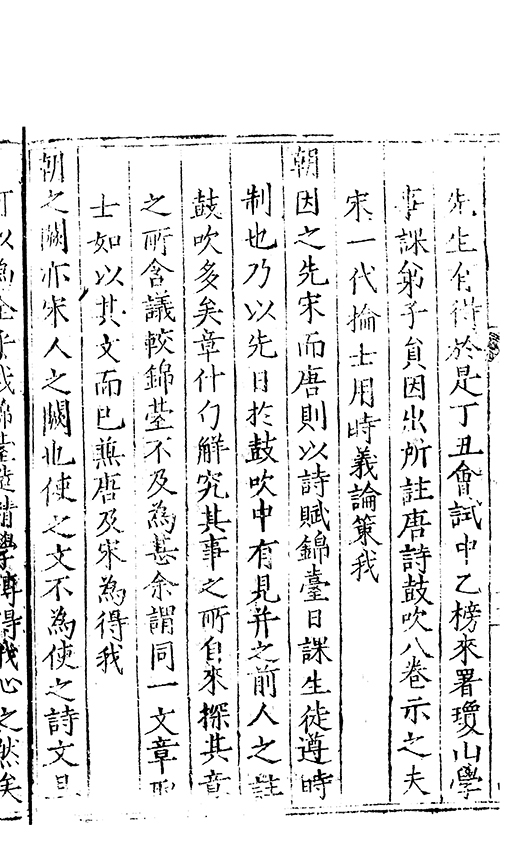 先生有得於是丁丑會試中乙榜來署瓊山學
事課弟子貟因出所註唐詩鼓吹八卷示之夫
宋一代掄士用時義論策我
朝因之先宋而唐則以詩賦錦臺日課生徒遵時
制也乃以先日扵鼓吹中有見并之前人之註
鼓吹多矣章什勹觧究其事之所自來探其章
之所含議較錦臺不及為甚余謂同一文章
士如以其文而已無唐及宋為得我
朝之闕亦宋人之闕也使之文不為使之詩文且
可以為全乎哉錦臺學博得我心之然矣